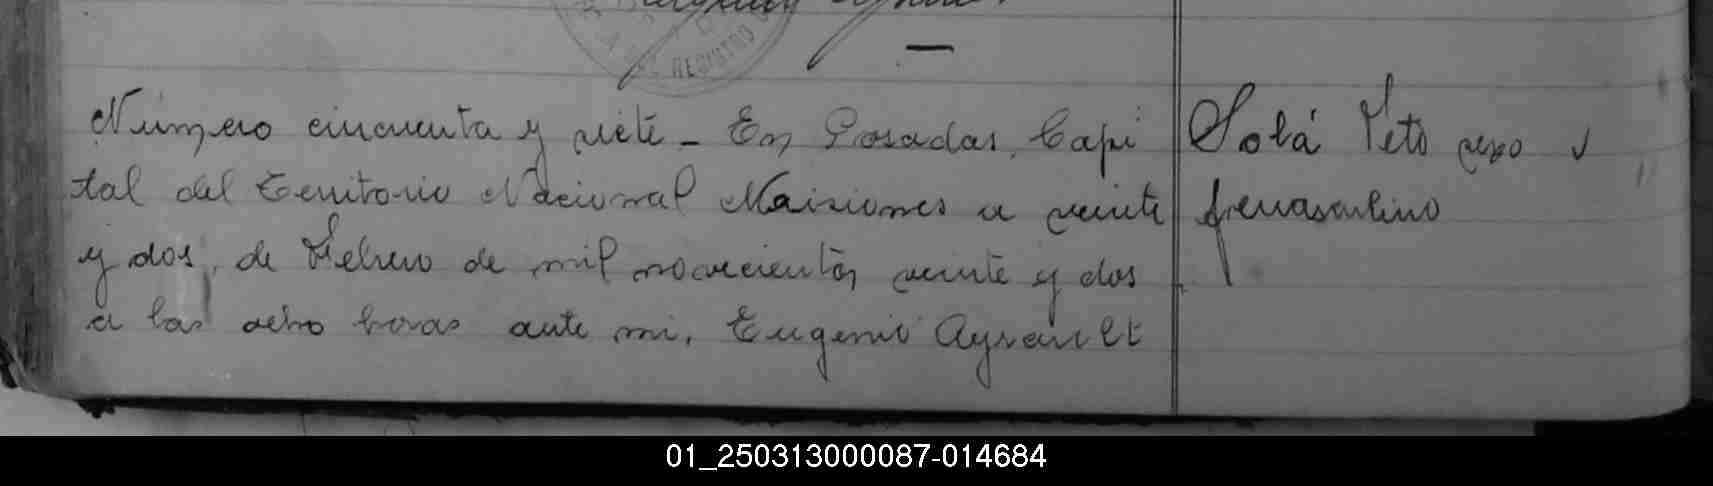 REGISTRO
Número cincuenta y siete – En Posadas, Capi
tal del Territorio Nacional Maisiones a veinte
y dos, de Febrero de mil novecientos veinte y dos
a las ocho horas ante mi, Eugenio Ayrault
Solá Feto sexo
masculino
01_250313000087-014684